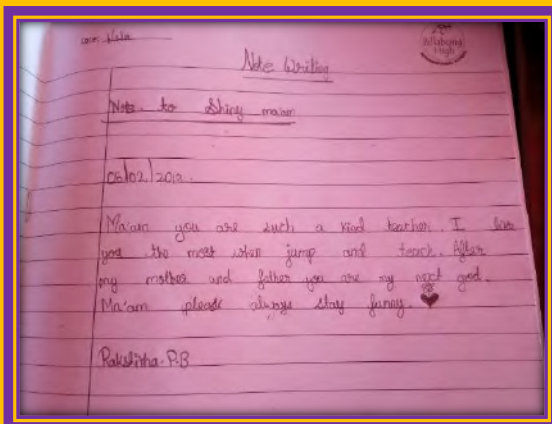 Billabong
High
Note Writing
Note to Shiny ma'am
06/02/2012.
Ma'am you are such a kind teacher. I love
you the most when jump and teach. After
my mother and father you are my next god.
Ma'am please always stay funny.
Rakshitha.P.B